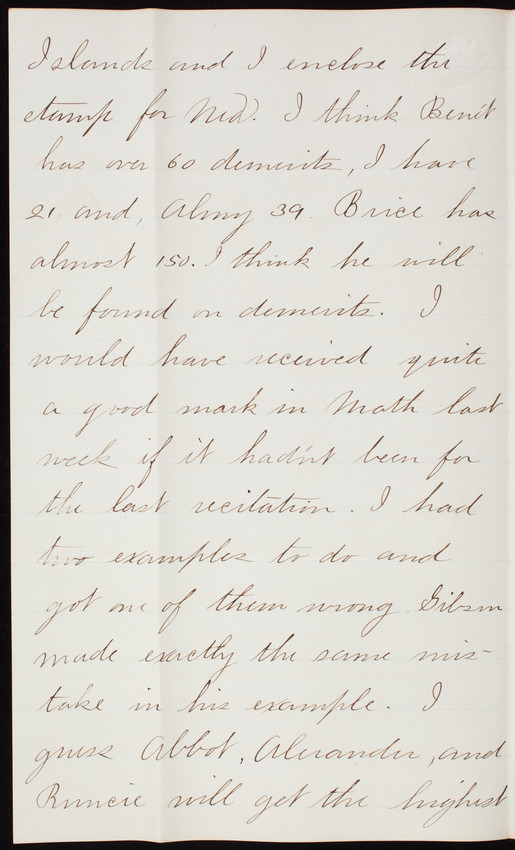 Islands and I enclose the
stamp for Ned. I think Benét
has over 60 demerits, I have
21 and, Almy 39. Brice has
almost 150. I think he will
be found on demerits. I
would have received quite
a good mark in Math last
week if it had'nt been for
the last recitation. I had
two examples to do and
got one of them wrong. Gibson
made exactly the same mis-
take in his example. I
guess Abbot, Alexander, and
Runcie will get the highest